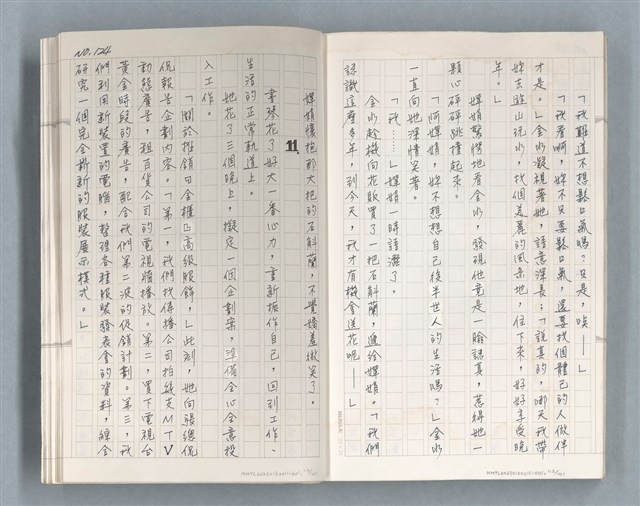 「我難道不想鬆口氣嗎？只是，唉——」
「我看啊，妳不只要鬆口氣，還要找個體己的人做伴
才是。」金水凝視著她，語意深長：「說真的，哪天我帶
妳去遊山玩水，找個美麗的風景地，住下來，好好享受晚
年。」
嬋娟驚愕地看金水，發現他竟是一臉認真，惹得她一
顆心砰砰跳撞起來。
「阿嬋娟，妳不想想自己後半世人的生活嗎？」金水
一直向她深情笑著。
「我……」嬋娟一時語澀了。
金水趁機向花販買了一把石斛蘭，遞給嬋娟。「我們
認識這麼多年，到今天，我才有機會送花呢——」
NO.124
嬋娟懷抱那大把的石斛蘭，不覺嬌羞微笑了。
11.
李琴花了好大一番心力，重新振作自己，回到工作、
生活的正常軌道上。
她花了三個晚上，擬定一個企劃案，準備全心全意投
入工作。
「關於推銷白金推凸高級服飾，」此刻，她向張總侃
侃報告企劃內容。「第一，我們找傳播公司拍幾支MTV
動態廣告，租百貨公司的電視牆播放。第二，買下電視台
黃金時段的廣告，配合我們第二波的促銷計劃。第三，我
們利用新裝置的電腦，整理各種服裝發表會的資料，綜合
研究一個完全嶄新的服裝展示模式。」